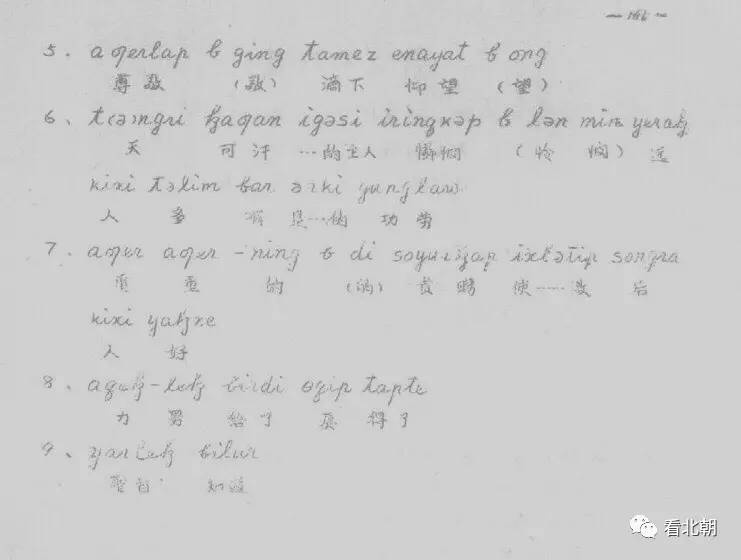 — 146 —
5、 aƣerlap b ging tamez enayat b ong
尊敬 (敬) 滴下 仰望 (望)
6、 təngri ⱪaƣan igəsi iringkəp b lən min yeraⱪ
天 可汗 …的主人 怜悯 (怜悯) 远
kixi təlim bar ərki yunglaw
人 多 是…的 功劳
7、 aƣer aƣer -ning b di soyurƣap ixlətip songra
重 重 的 (的) 赏赐 使……没 后
kixi yahxe
人 好
8、 -leⱪ birdi tapte
力 给了 得了
9、 yarleⱪ bilur
知道
看北朝